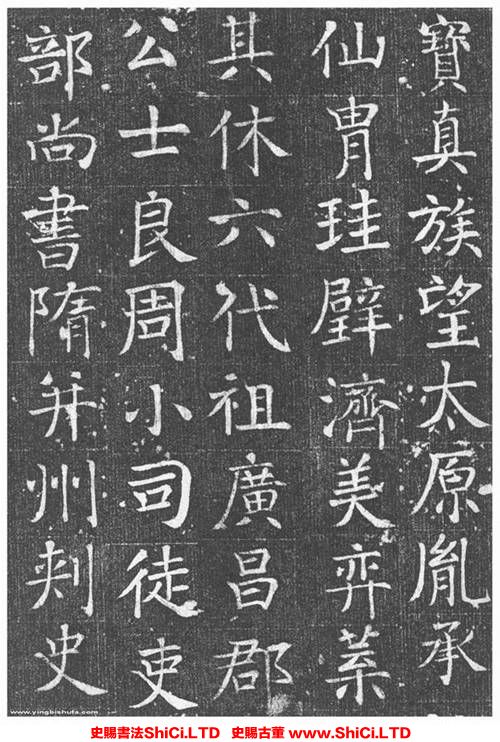 寶真族望太原胤承
仙胄珪璧濟美弈葉
其休六代祖廣昌郡
公士良周小司徒吏
部尚書隋并州刾史
www.yingbishufa.com
史賜書法ShiCi.LTD 史賜古董 www.ShiCi.LTD